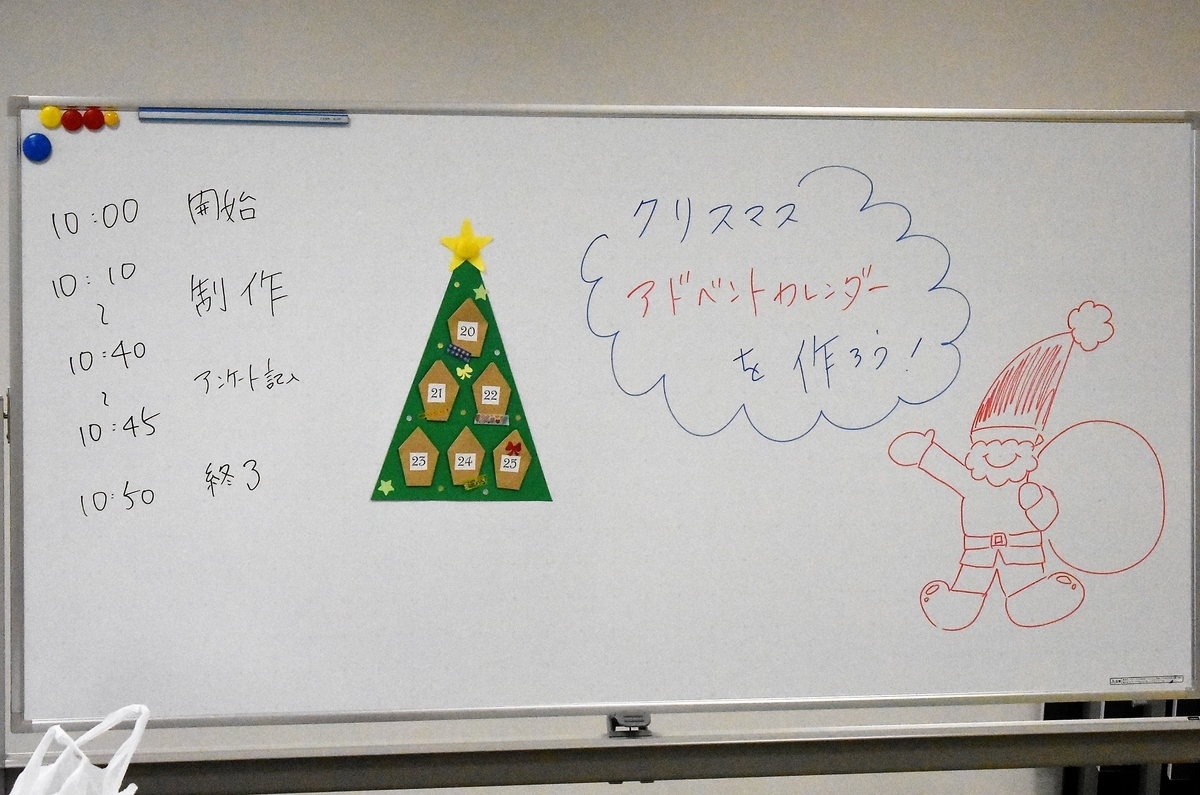 10:00 開始
10:10 制作
〜
10:40 アンケート記入
〜
10:45
10:50 終了
20
21
22
23
24
25
クリスマス
アドベントカレンダー
を作ろう!